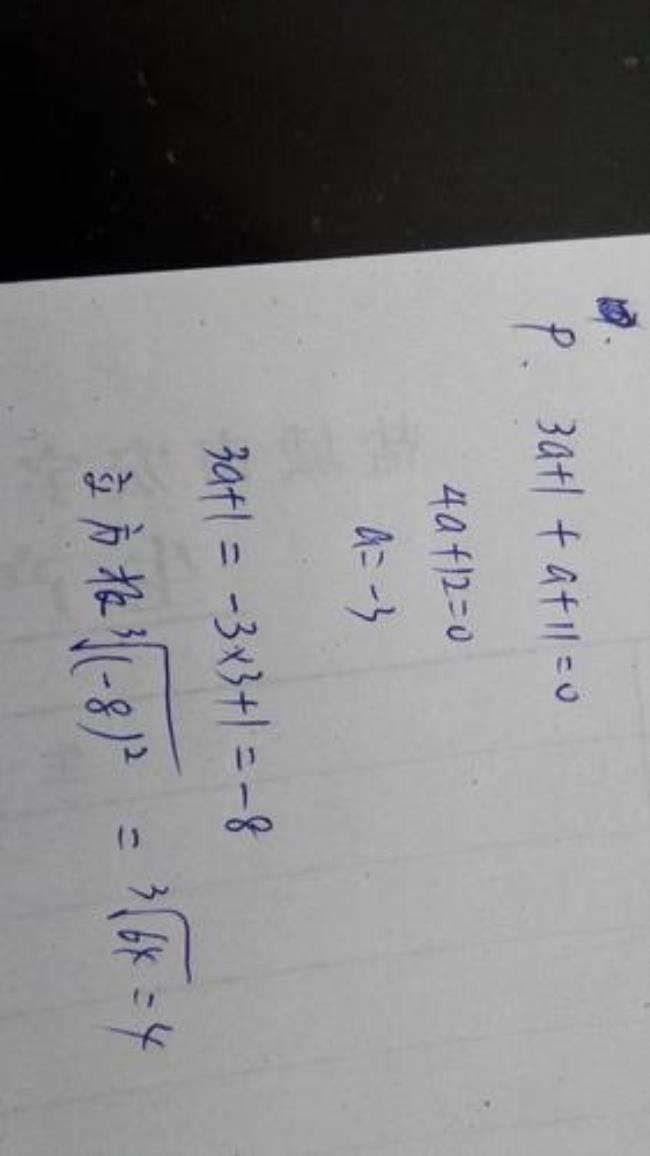 3a+1+a+11=0
4a+12=0
a=-3
3a+1=-3×3+1=-8
立方根∛(-8)² = ∛64 = 4